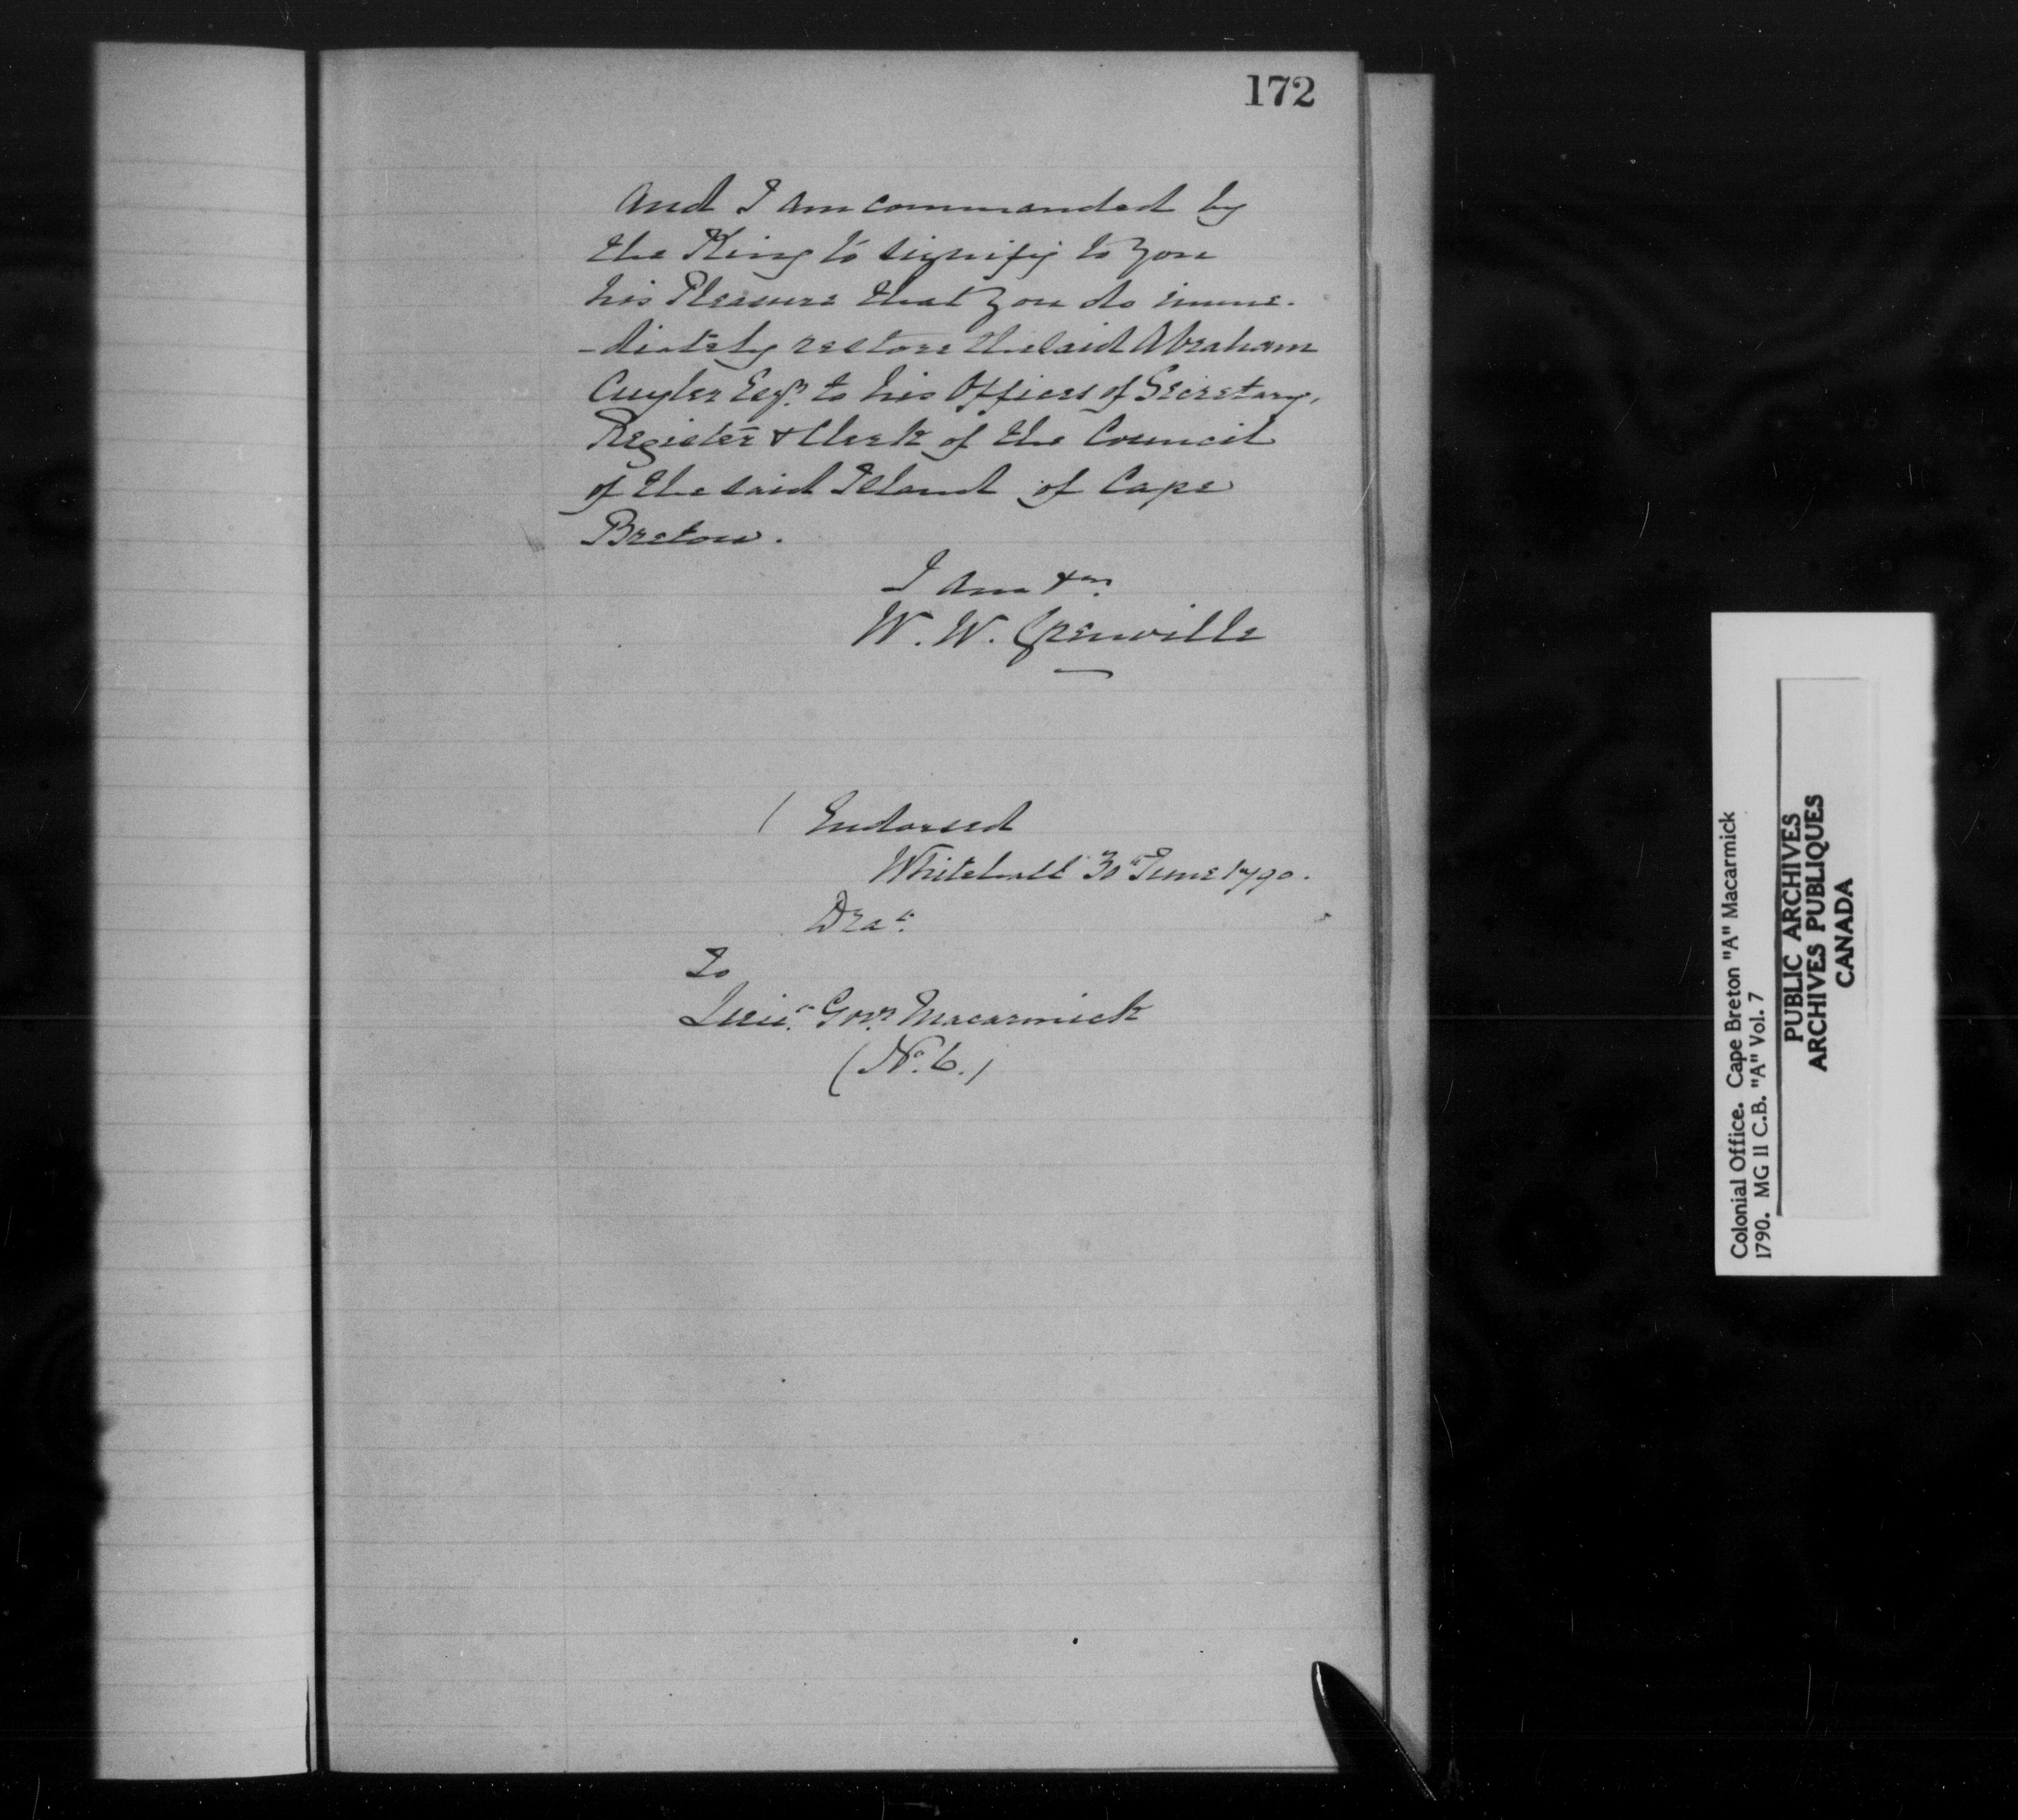 172
And I am commanded by
the King to signify to you
his Pleasure that you do imme-
-diately restore the said Abraham
Cuyler Esqr. to his Offices of Secretary,
Register & Clerk of the Council
of the said Island of Cape
Breton.
I am &c.
W. W. Grenville
( Endorsed
Whitehall 30th June 1790.
Drat.
To
Lieut. Govr. Macarmick
(No. 6.)
Colonial Office. Cape Breton "A" Macarmick
1790. MG 11 C.B. "A" Vol. 7
PUBLIC ARCHIVES
ARCHIVES PUBLIQUES
CANADA